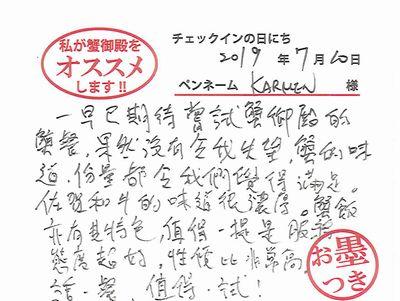 私が蟹御殿を
オススメ
します!!
チェックインの日にち
2019 年 7月 10日
ペンネーム KARMEN 様
一早已期待嘗試蟹御殿的
蟹餐,果然沒有令我失望,蟹的味
道、份量都令我們覺得滿足。
佐賀和牛的味道很濃得。蟹飯
亦有其特色,值得一提是服務
態度超好,性價比非常高。
一餐,值得一試!
お墨
つき